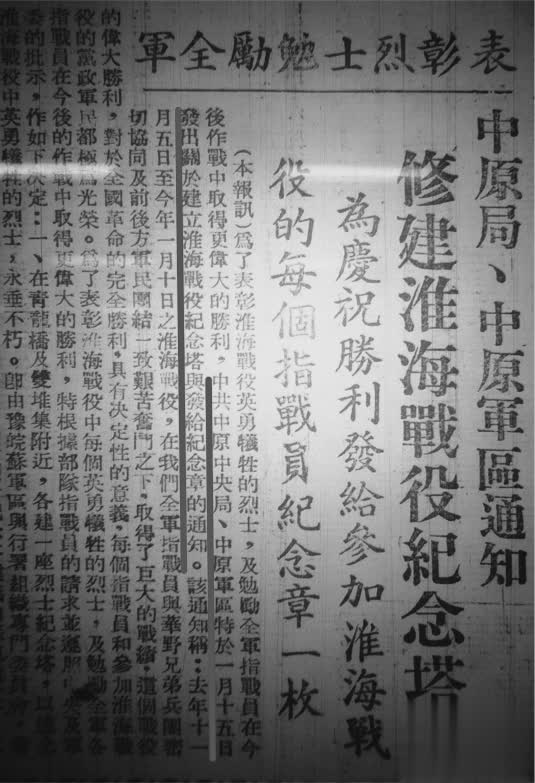 表彰烈士勉勵全軍
中原局、中原軍區通知
修建淮海戰役紀念塔
為慶祝勝利發給參加淮海戰
役的每個指戰員紀念章一枚
（本報訊）爲了表彰淮海戰役英勇犧牲的烈士，及勉勵全軍指戰員在今
後作戰中取得更偉大的勝利，中共中原中央局、中原軍區特於一月十五日
發出關於建立淮海戰役紀念塔與發給紀念章的通知。該通知稱：去年十一
月五日至今年一月十日之淮海戰役，在我們全軍指戰員與華野兄弟兵團密
切協同及前後方軍民團結一致艱苦奮鬥之下，取得了巨大的戰績，這個戰役
的偉大勝利，對於全國革命的完全勝利，具有決定性的意義，每個指戰員和參加淮海戰
役的黨政軍民都極爲光榮。爲了表彰淮海戰役中每個英勇犧牲的烈士，及勉勵全軍各
指戰員在今後的作戰中取得更偉大的勝利，特根據部隊指戰員的請求並遵照中央及軍
委的批示，作如下決定：一、在青龍橋及雙堆集附近，各建一座烈士紀念塔，以
淮海戰役中英勇犧牲的烈士，永垂不朽。即由豫皖蘇軍區與行署組織專門委員會，